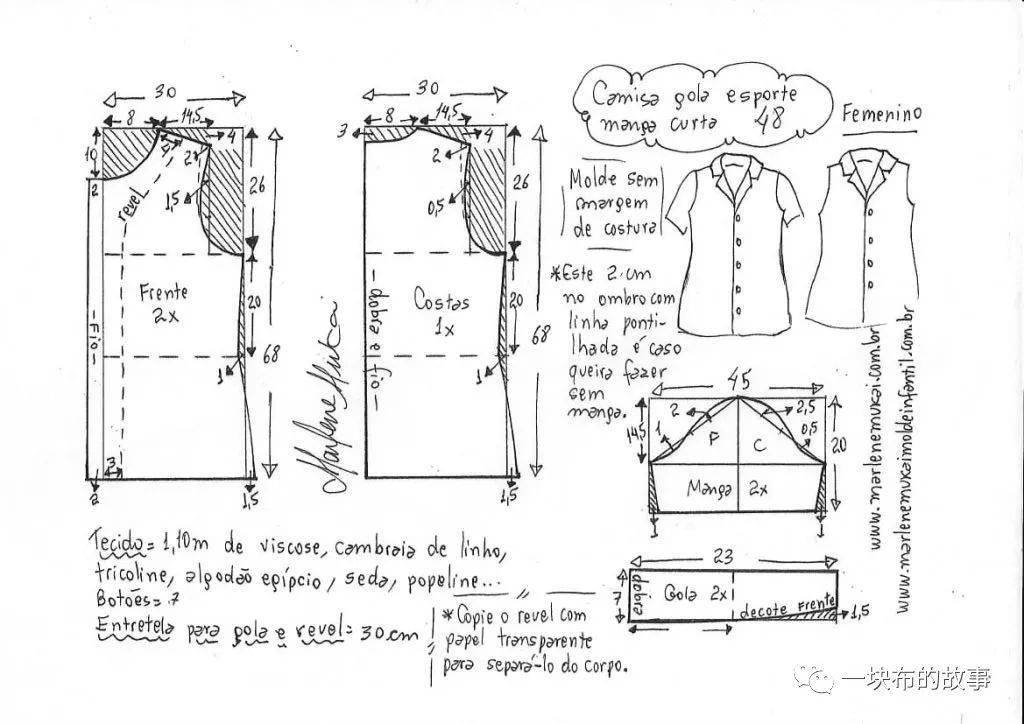 Camisa gola esporte
manga curta 48
Femenino
Molde sem
margem
de costura
*Este 2 cm
no ombro com
linha ponti-
lhada é caso
queira fazer
sem
manga.
30
8
14,5
4
10
2
2
1,5
revel
26
Frente
2x
20
-Fio-
1
68
3
2
1,5
30
8
14,5
3
4
2
0,5
26
Costas
1x
20
-dobra e fio-
1
68
1,5
Marlene Mukai
45
2
2,5
14,5
1
F
C
0,5
20
Manga 2x
1
1
23
7
dobra
Gola 2x
decote Frente
1,5
www.marlenemukai.com.br
www.marlenemukaimoldeinfantil.com.br
Tecido= 1,10m de viscose, cambraia de linho,
tricoline, algodão egípcio, seda, popeline...
Botões= 7
Entretela para gola e revel= 30cm
*Copie o revel com
papel transparente
para separá-lo do corpo.
一块布的故事